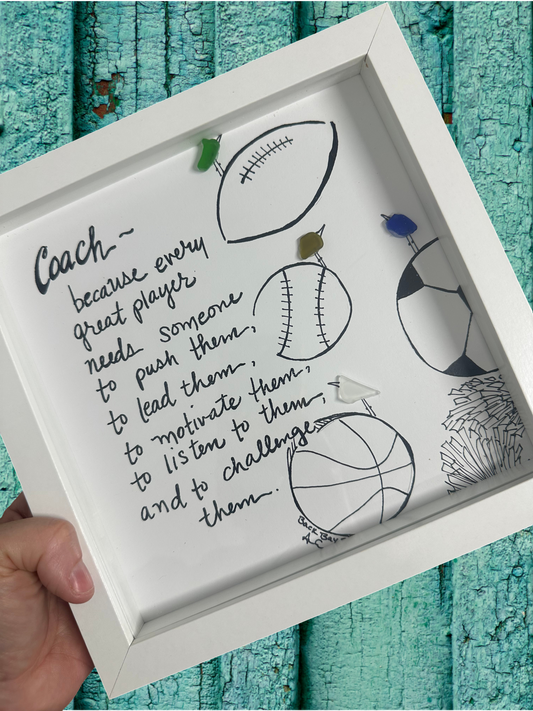 Coach~
because every
great player
needs someone
to push them,
to lead them,
to motivate them,
to listen to them,
and to challenge
them.
Back Bay